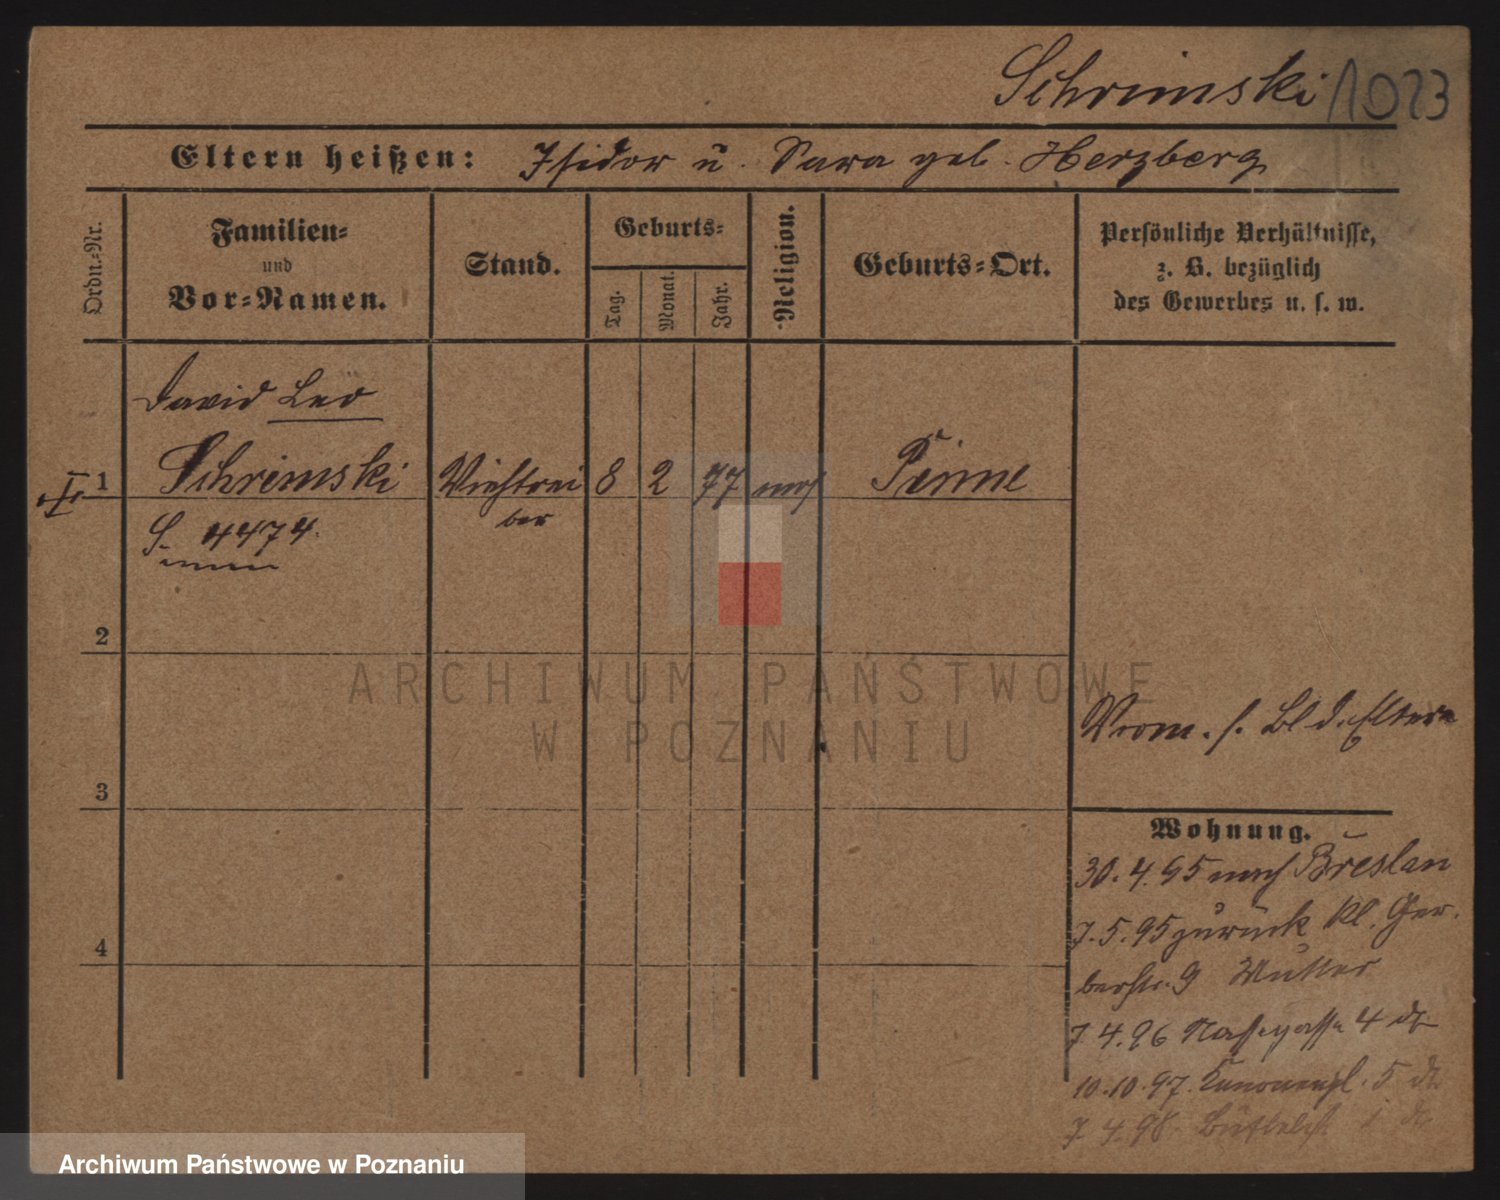 Schrimski 1023
Eltern heißen: Isidor u. Sara geb. Herzberg
Ordn.-Nr.
Familien-
und
Vor-Namen.
Stand.
Geburts-
Tag.
Monat.
Jahr.
Religion.
Geburts-Ort.
Persönliche Verhältnisse,
z. B. bezüglich
des Gewerbes u. s. w.
David Leo
1 Schrimski Viehtrei 8 2 77 mos Pinne
ber
S. 4474.
2
ARCHIWUM PAŃSTWOWE
W POZNANIU
Vrom. s. Bl d. Eltern
3
Wohnung.
30.4.95 nach Breslau
7.5.95 zurück Kl. Ger-
berstr. 9 Mutter
4
7.4.96 Nassegasse 4 dt
10.10.97. Kanonenpl. 5 dt
7.4.98.
Archiwum Państwowe w Poznaniu